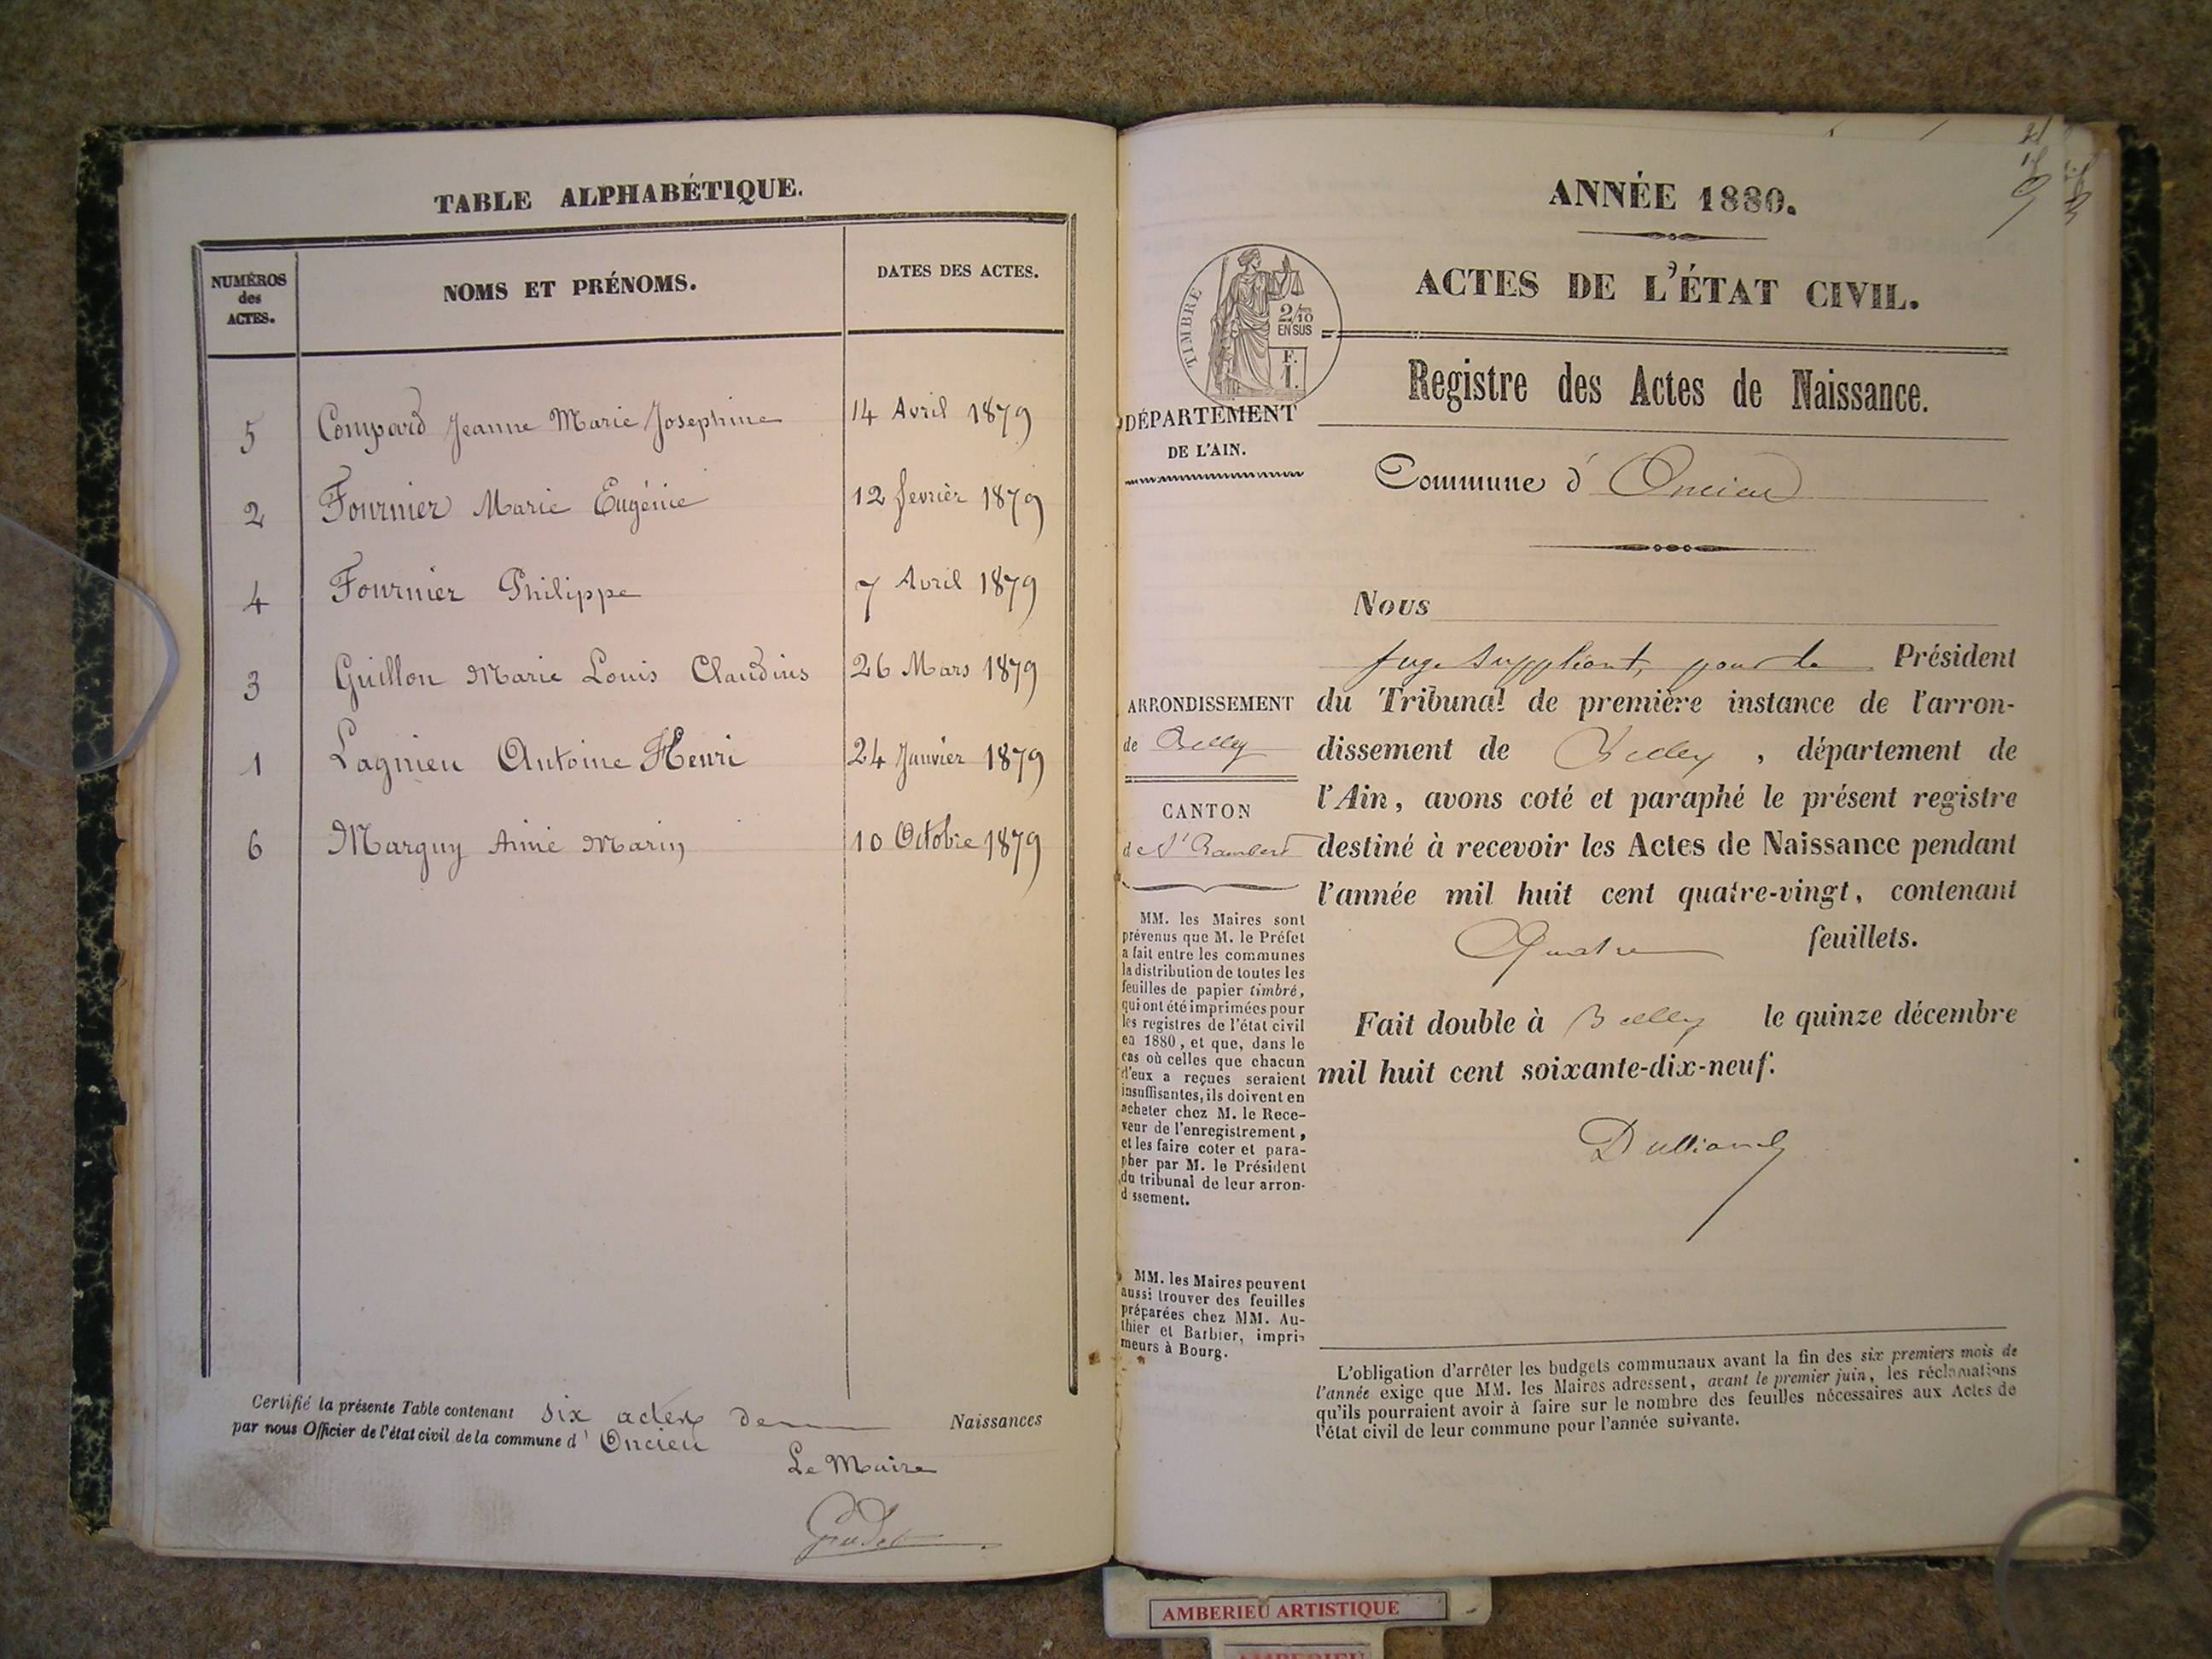 TABLE ALPHABÉTIQUE.
NUMÉROS
des
ACTES.
NOMS ET PRÉNOMS.
DATES DES ACTES.
5 Compard Jeanne Marie Josephine 14 Avril 1879
2 Fournier Marie Eugénie 12 fevrier 1879
4 Fournier Philippe 7 Avril 1879
3 Guillon Marie Louis Claudius 26 Mars 1879
1 Lagnieu Antoine Henri 24 Janvier 1879
6 Marguy Aimé Marin 10 Octobre 1879
Certifié la présente Table contenant six actes de Naissances
par nous Officier de l'état civil de la commune d' Oncieu
Le Maire
ANNÉE 1880.
ACTES DE L'ÉTAT CIVIL.
TIMBRE
2/10
EN SUS
F.
1.
Registre des Actes de Naissance.
DÉPARTEMENT
DE L'AIN.
Commune d' Oncieu
Nous
juge suppléant, pour le Président
du Tribunal de première instance de l'arron-
dissement de Belley, département de
l'Ain, avons coté et paraphé le présent registre
destiné à recevoir les Actes de Naissance pendant
l'année mil huit cent quatre-vingt, contenant
Quatre feuillets.
Fait double à Belley le quinze décembre
mil huit cent soixante-dix-neuf.
ARRONDISSEMENT
de Belley
CANTON
de St Rambert
MM. les Maires sont
prévenus que M. le Préfet
a fait entre les communes
la distribution de toutes les
feuilles de papier timbré,
qui ont été imprimées pour
les registres de l'état civil
en 1880, et que, dans le
cas où celles que chacun
d'eux a reçues seraient
insuffisantes, ils doivent en
acheter chez M. le Rece-
veur de l'enregistrement,
et les faire coter et para-
pher par M. le Président
du tribunal de leur arron-
d ssement.
MM. les Maires peuvent
aussi trouver des feuilles
préparées chez MM. Au-
thier et Barbier, impri-
meurs à Bourg.
L'obligation d'arrêter les budgets communaux avant la fin des six premiers mois de
l'année exige que MM. les Maires adressent, avant le premier juin, les réclamations
qu'ils pourraient avoir à faire sur le nombre des feuilles nécessaires aux Actes de
l'état civil de leur commune pour l'année suivante.
AMBERIEU ARTISTIQUE
AMBERIEU